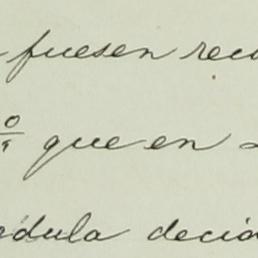 fuesen rec
% que en
dula deci